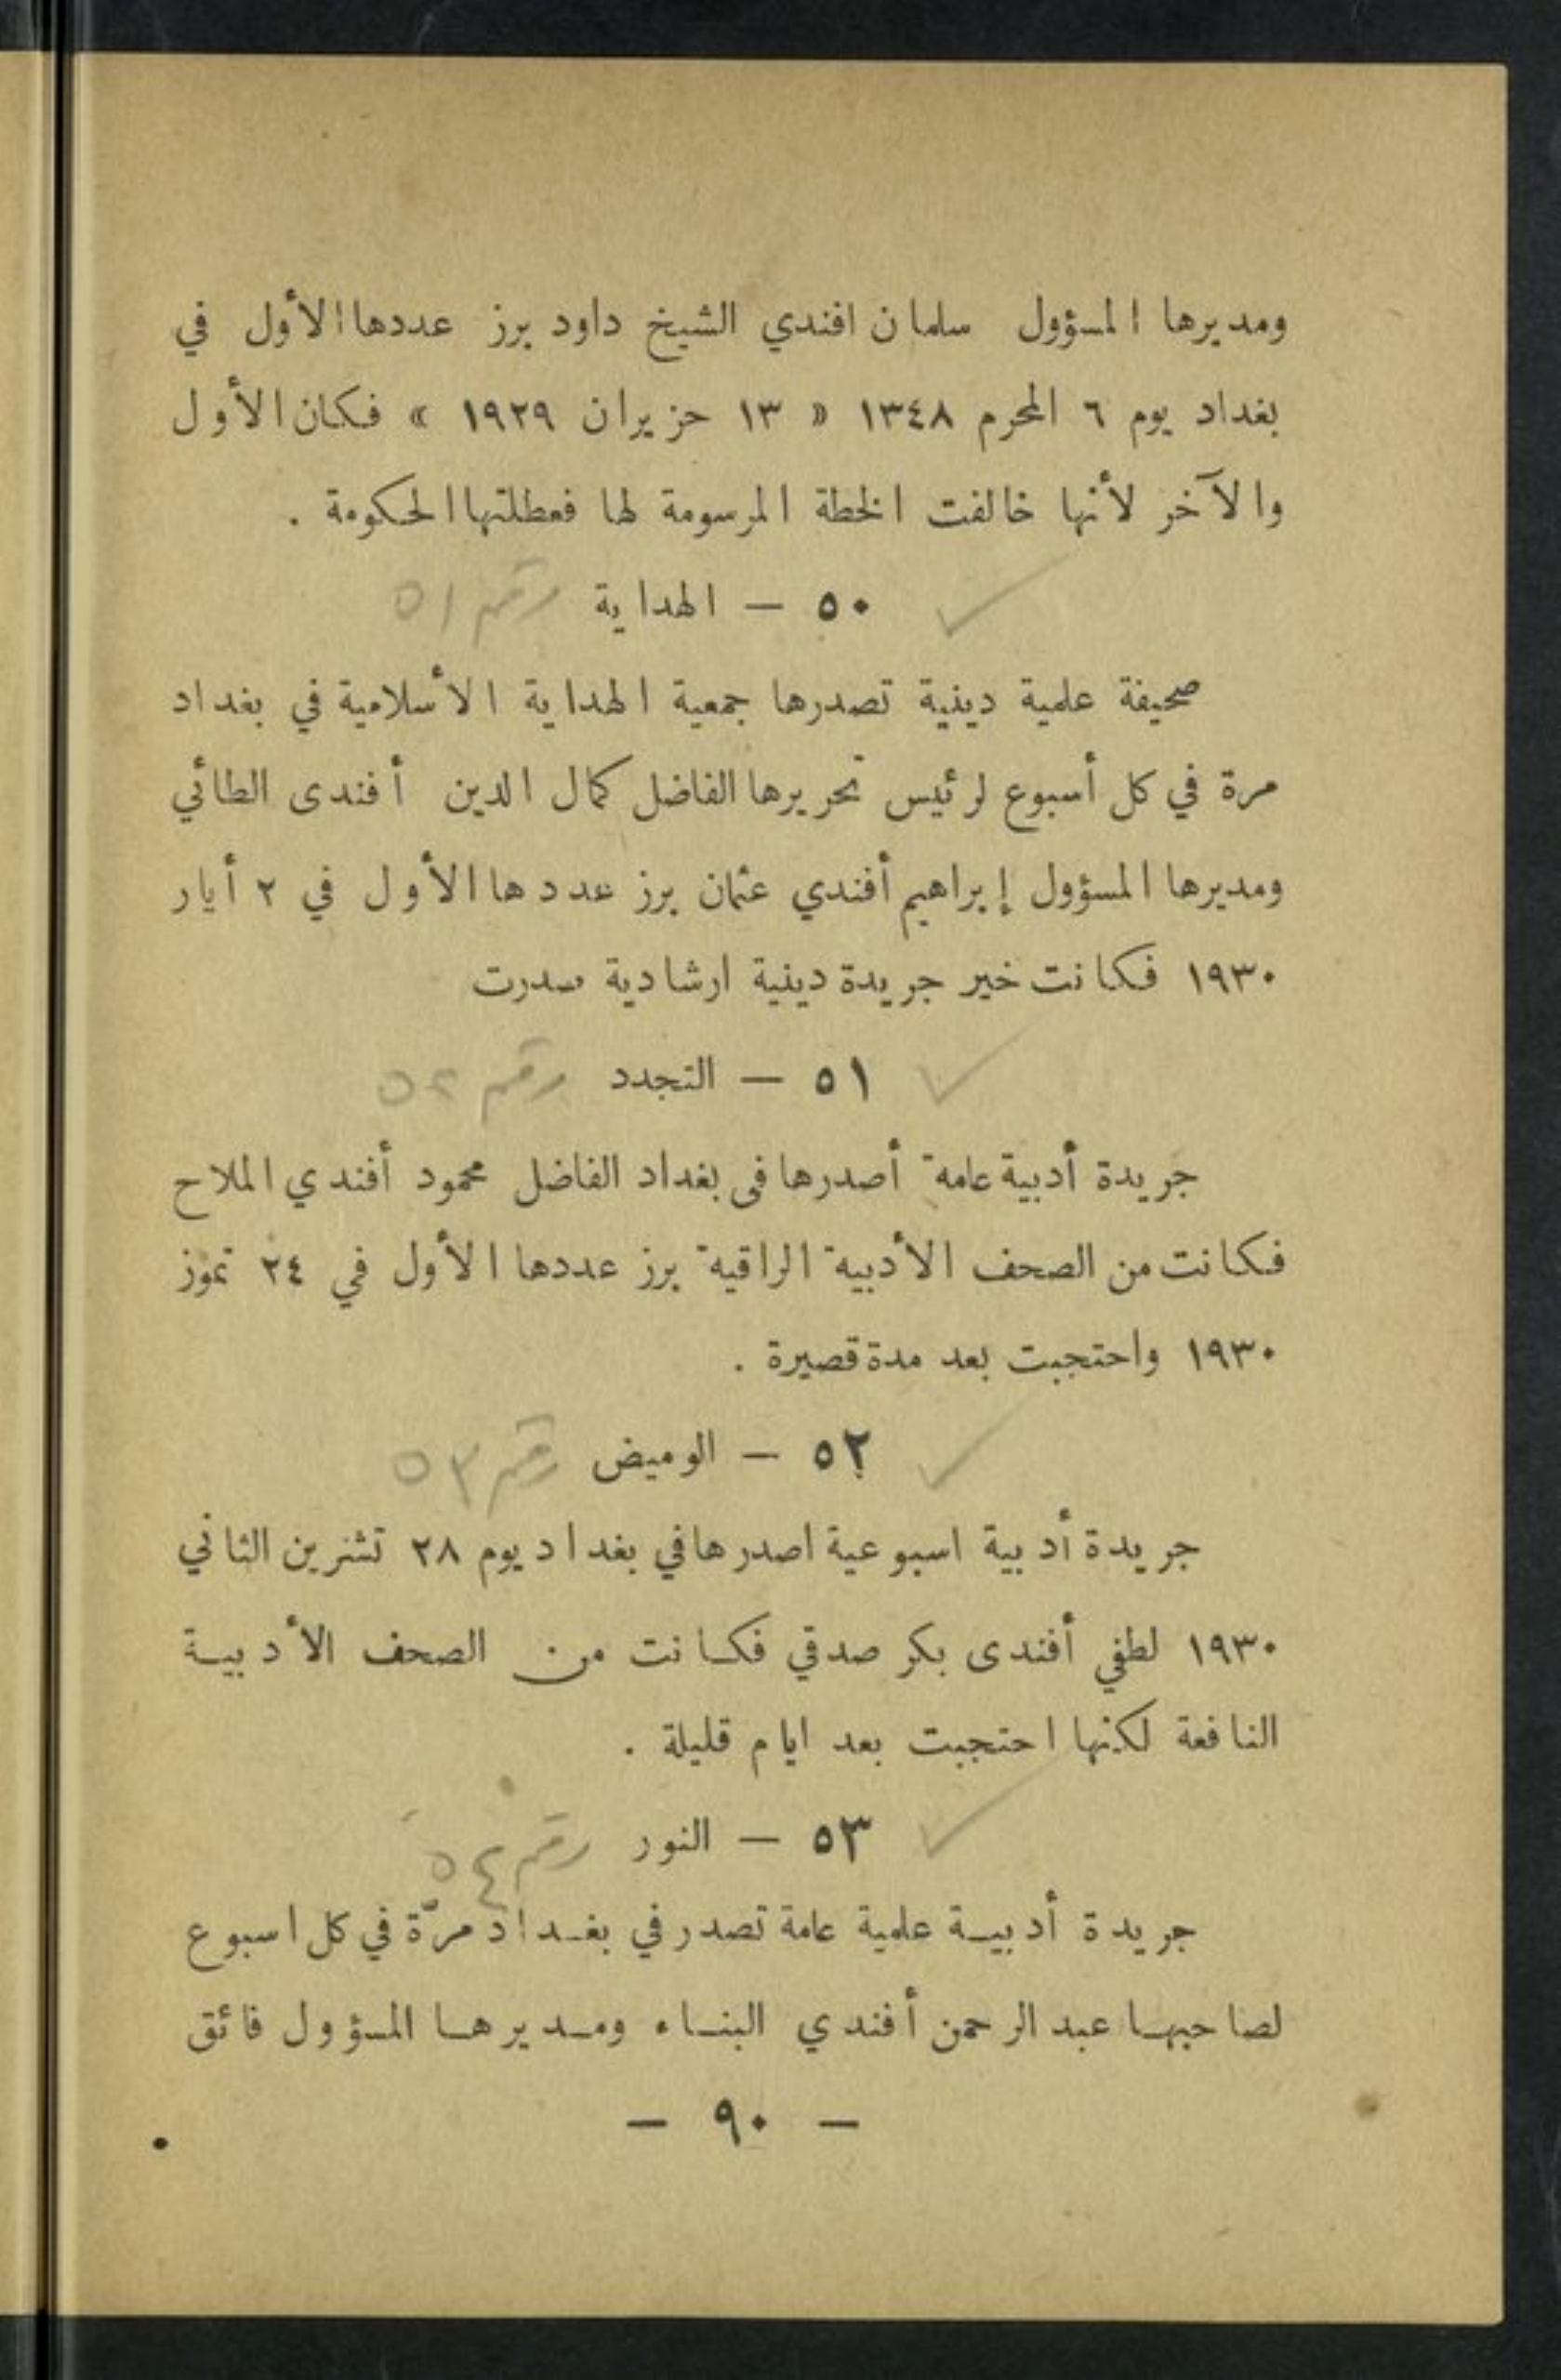 ومديرها المسؤول سلمان افندي الشيخ داود برز عددها الأول في
بغداد يوم ٦ المحرم ١٣٤٨ « ١٣ حزيران ١٩٢٩ » فكان الأول
والآخر لأنها خالفت الخطة المرسومة لها فعطلتها الحكومة .
٥٠ — الهداية رقم ٥١
صحيفة علمية دينية تصدرها جمعية الهداية الأسلامية في بغداد
مرة في كل أسبوع لرئيس تحريرها الفاضل كمال الدين أفندى الطائي
ومديرها المسؤول إبراهيم أفندي عثمان برز عددها الأول في ٢ أيار
١٩٣٠ فكانت خير جريدة دينية ارشادية صدرت
٥١ — التجدد رقم ٥٢
جريدة أدبية عامة أصدرها فى بغداد الفاضل محمود أفندي الملاح
فكانت من الصحف الأدبية الراقية برز عددها الأول في ٢٤ تموز
١٩٣٠ واحتجبت بعد مدة قصيرة .
٥٢ — الوميض رقم ٥٣
جريدة أدبية اسبوعية اصدرها في بغداد يوم ٢٨ تشرين الثاني
١٩٣٠ لطفي أفندى بكر صدقي فكانت من الصحف الأدبية
النافعة لكنها احتجبت بعد ايام قليلة .
٥٣ — النور رقم ٥٤
جريدة أدبية علمية عامة تصدر في بغداد مرّة في كل اسبوع
لصاحبها عبد الرحمن أفندي البناء ومديرها المسؤول فائق
— ٩٠ —